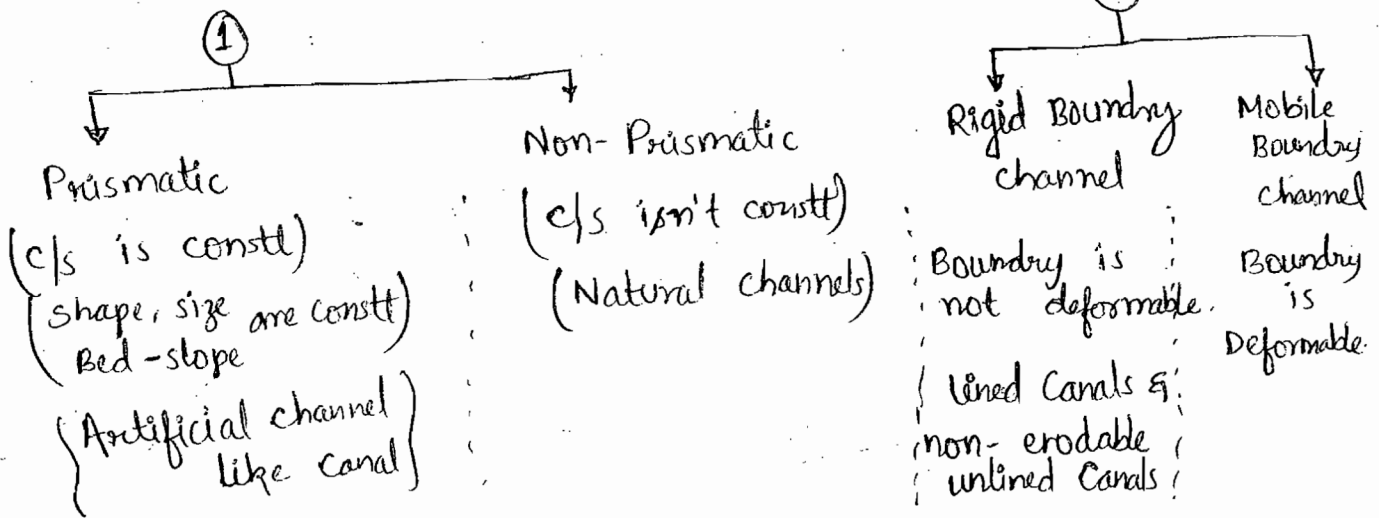 1
Prismatic
(c/s is constt)
(shape, size are constt)
Bed-slope
{Artificial channel
like canal}
Non-Prismatic
(c/s isn't constt)
(Natural channels)
Rigid Boundry
channel
Boundry is
not deformable.
lined Canals &
non-erodable
unlined Canals
Mobile
Boundry
Channel
Boundry
is
Deformable.